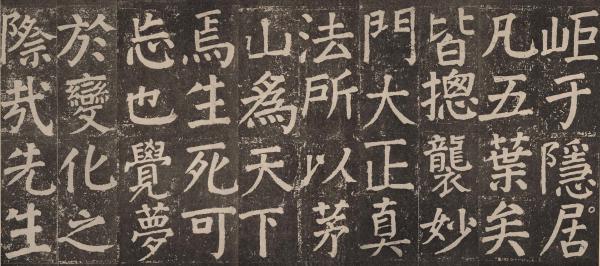 岠于隱居
凡五葉矣
皆摠襲妙
門大正真
法所以茅
山爲天下
焉生死可
忘也覺夢
於變化之
際哉先生